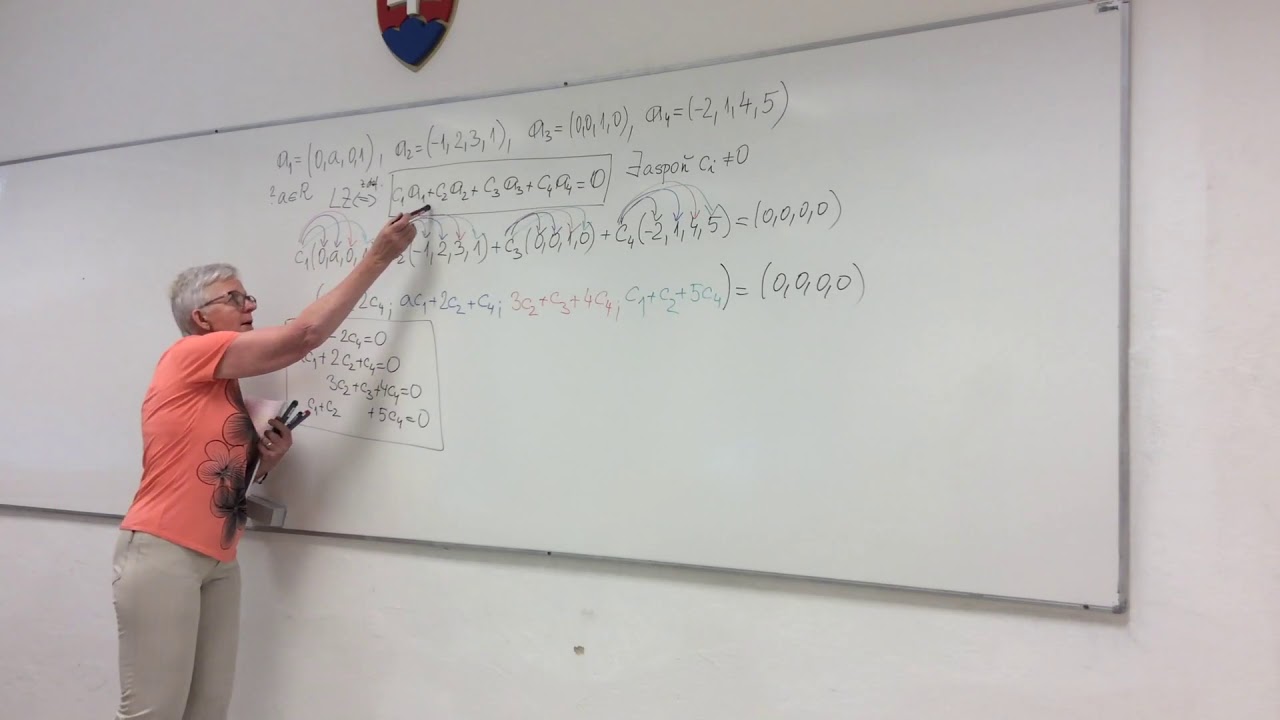 a₁=(0,a,0,1), a₂=(-1,2,3,1), a₃=(0,0,1,0), a₄=(-2,1,4,5)
?a∈R LZ(⇔ c₁a₁+c₂a₂+c₃a₃+c₄a₄=0 ∃aspoň cᵢ≠0
c₁(0,a,0,1 ₂(-1,2,3,1)+c₃(0,0,1,0)+c₄(-2,1,4,5)=(0,0,0,0)
( 2c₄; ac₁+2c₂+c₄; 3c₂+c₃+4c₄; c₁+c₂+5c₄)=(0,0,0,0)
-2c₄=0
c₁+2c₂+c₄=0
3c₂+c₃+4c₄=0
c₁+c₂ +5c₄=0